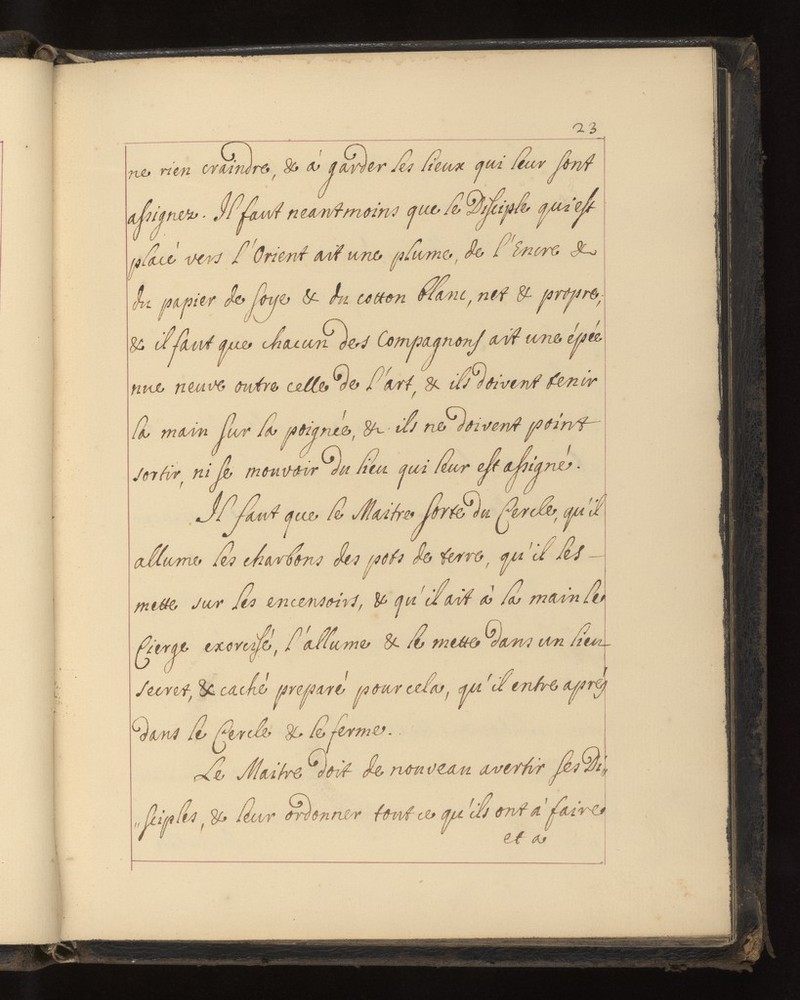 23
ne rien craindre, & á garder les lieux qui leur sont
assignez. Il faut neantmoins que le Disciple qui est
placé vers l'Orient ait une plume, de l'Encre &
du papier de soye & du cotton blanc, net & propre,
& il faut que chacun des Compagnons ait une épée
nue neuve outre celle de l'art, & ils doivent tenir
la main sur la poignée, & ils ne doivent point
sortir, ni se mouvoir du lieu qui leur est assigné.
Il faut que le Maitre sorte du Cercle, qu'il
allume les charbons des pots de terre, qu'il les –
mette sur les encensoirs, & qu'il ait à la main le
Cierge exorcisé, l'allume & le mette dans un lieu
secret, & caché preparé pour cela, qu'il entre aprés
dans le Cercle & le ferme.
Le Maitre doit de nouveau avertir ses Di„
„sciples, & leur ordonner tout ce qu'ils ont á faire
et a